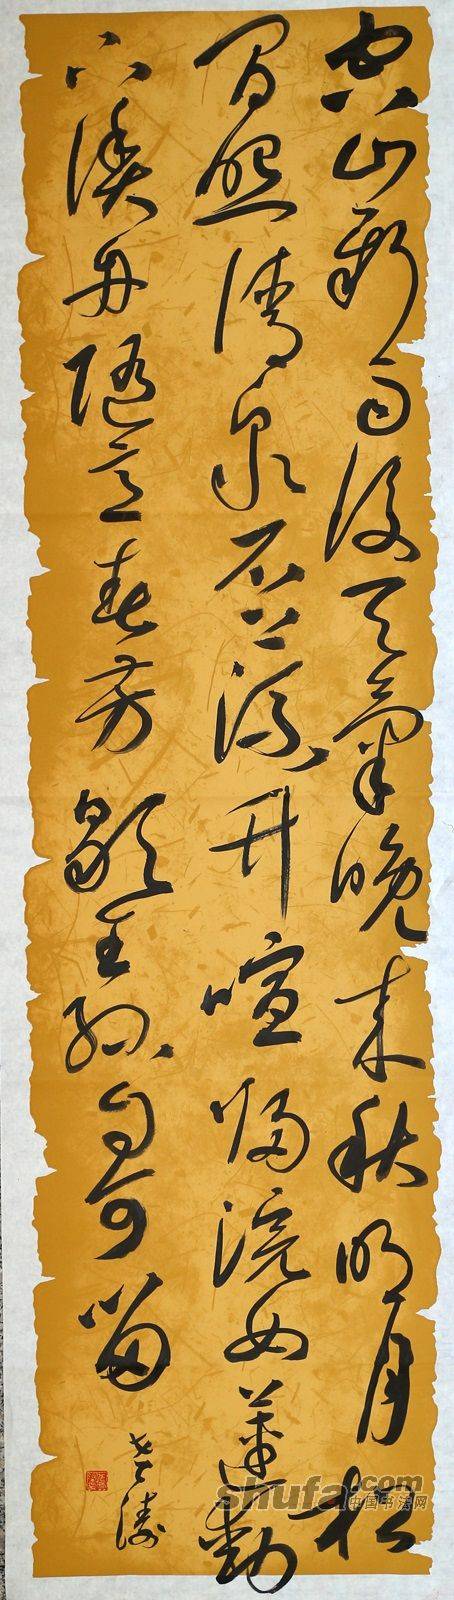 空山新雨後天氣晚来秋明月松
間照清泉石上流竹喧歸浣女蓮動
下漁舟隨意春芳歇王孫自可留
shufa.com
中国书法网